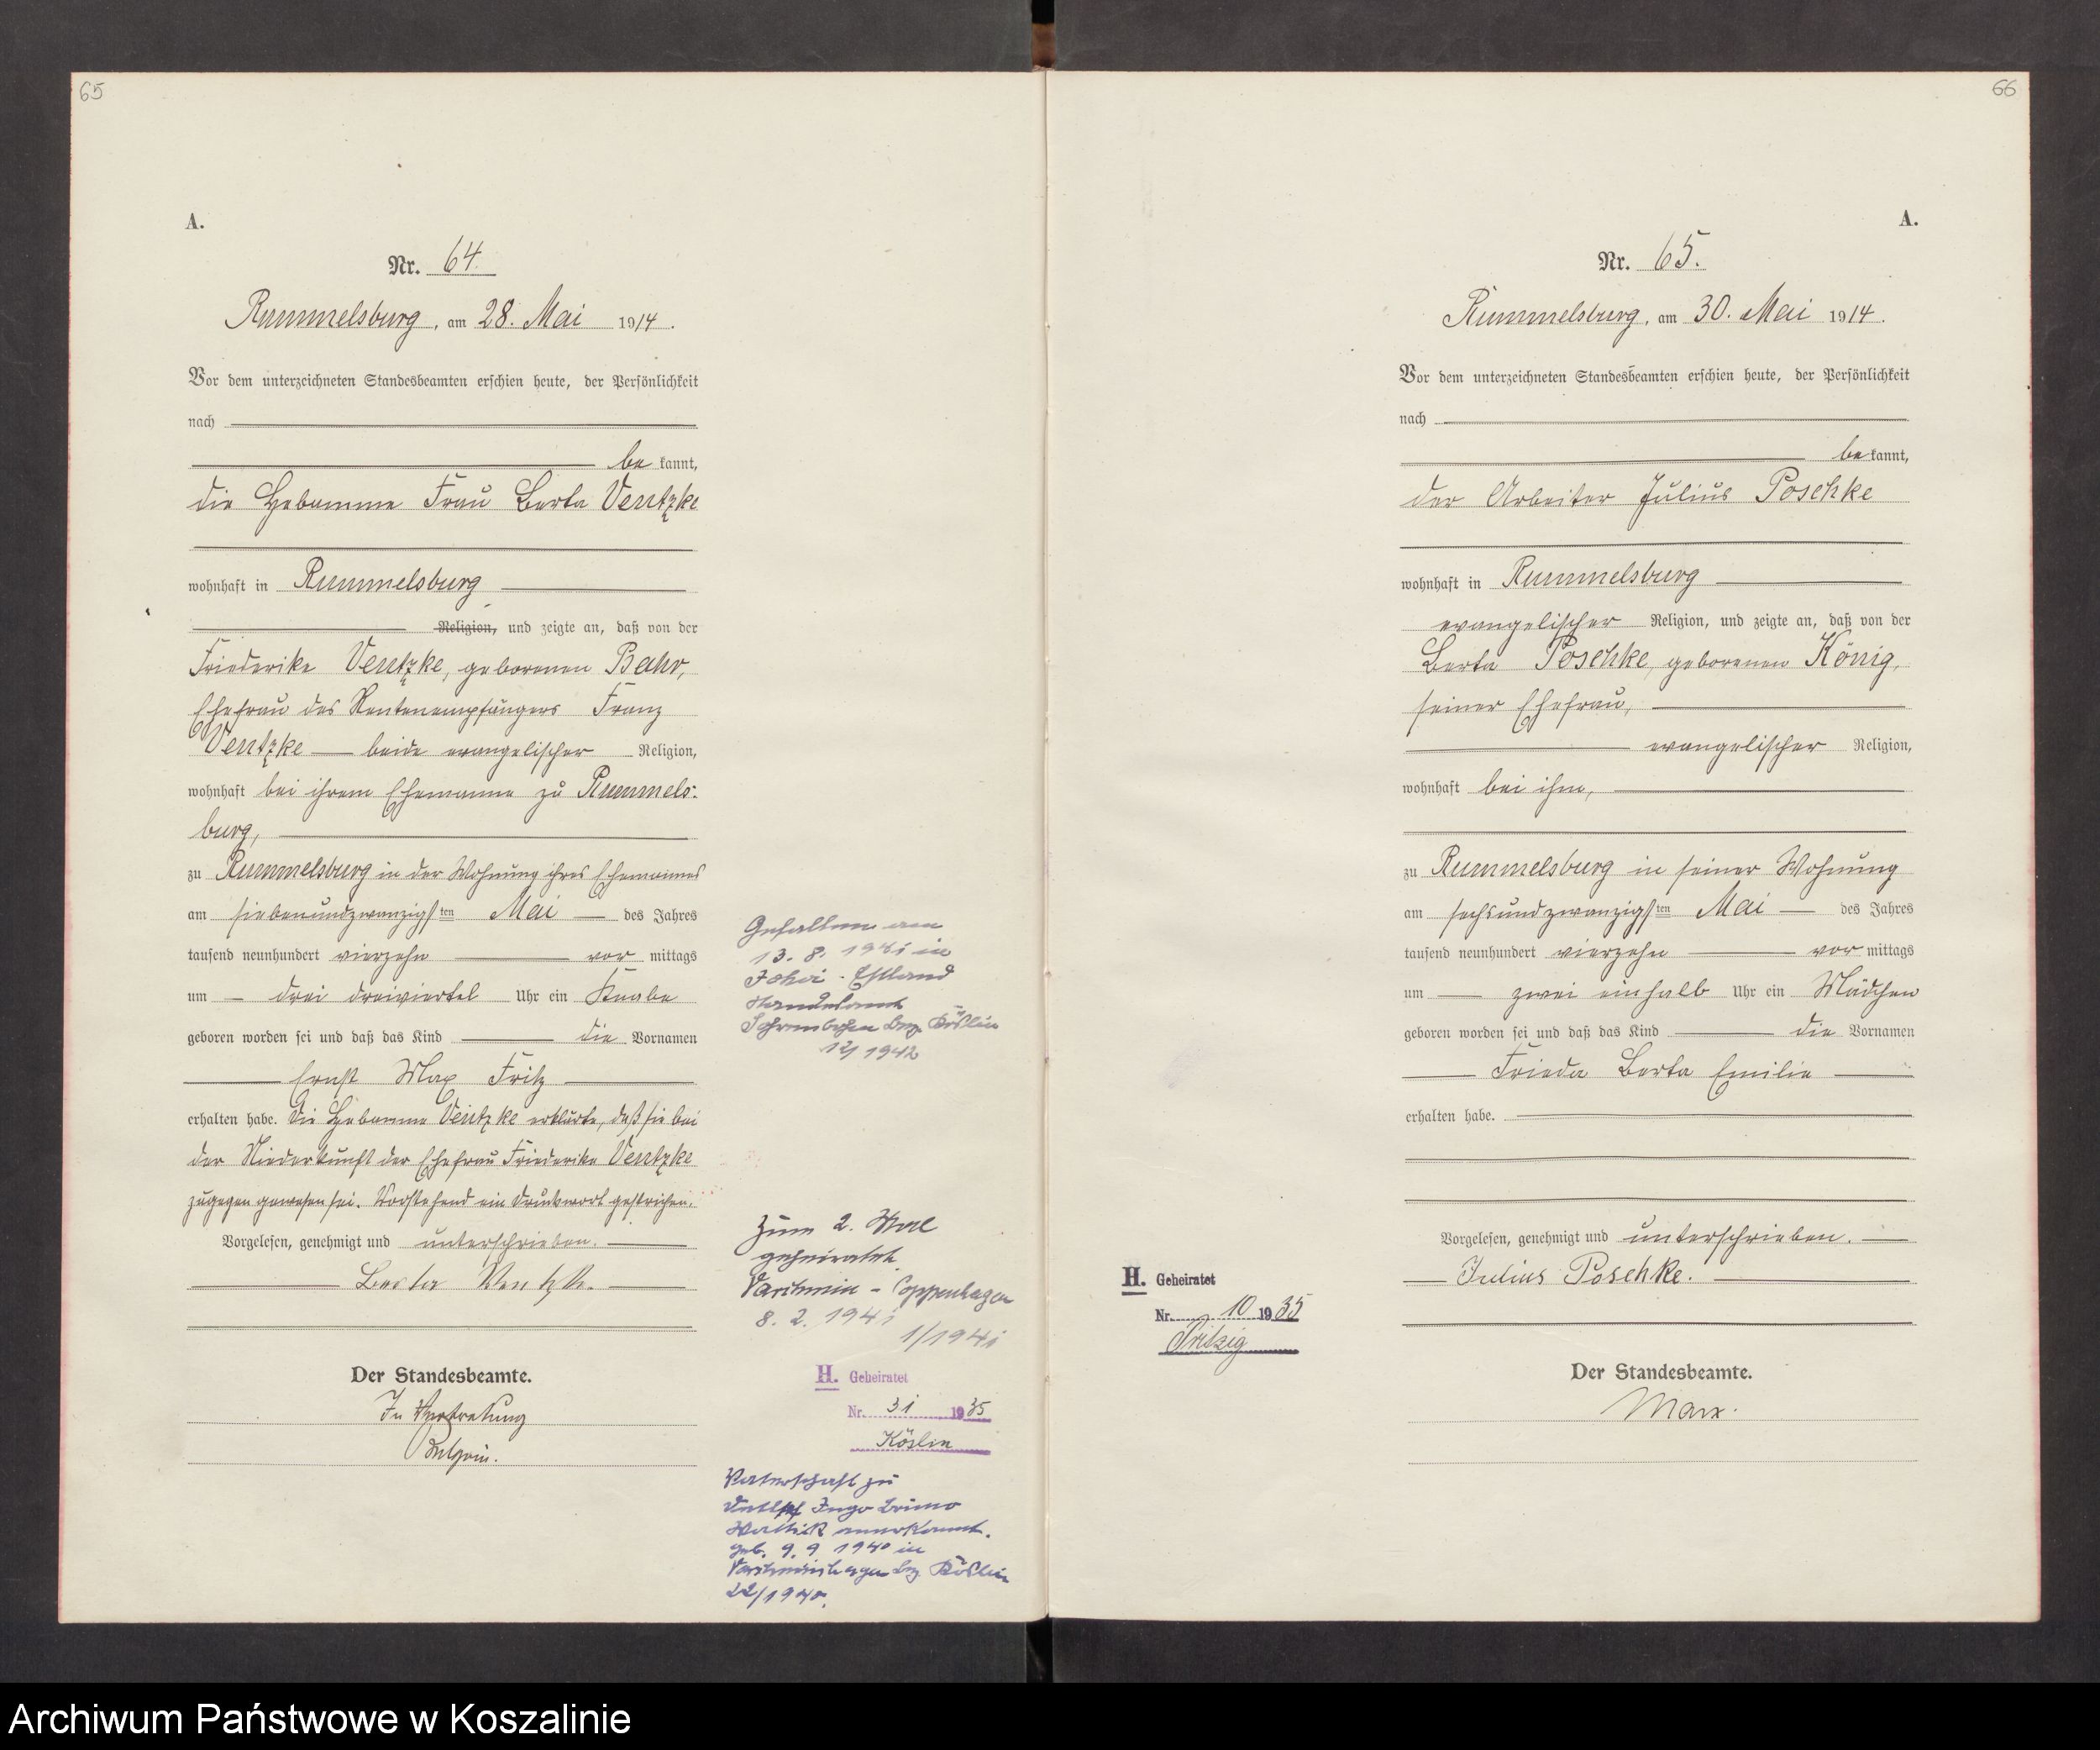 65
A.
Nr. 64.
Rummelsburg, am 28. Mai 1914.
Vor dem unterzeichneten Standesbeamten erschien heute, der Persönlichkeit
nach
be kannt,
die Hebamme Frau Berta Ventzke
wohnhaft in Rummelsburg
Religion, und zeigte an, daß von der
Friederike Ventzke, geborenen Bahr,
Ehefrau des Rentenempfängers Franz
Ventzke beide evangelischer Religion,
wohnhaft bei ihrem Ehemanne zu Rummels-
burg,
zu Rummelsburg in der Wohnung ihres Ehemannes
am siebenundzwanzigsten Mai des Jahres
tausend neunhundert vierzehn vor mittags
um drei dreiviertel Uhr ein Knabe
geboren worden sei und daß das Kind die Vornamen
Ernst Max Fritz
erhalten habe. Die Hebamme Ventzke erklärte, daß sie bei
der Niederkunft der Ehefrau Friederike Ventzke
zugegen gewesen sei. Vorstehend ein Druckwort gestrichen.
Vorgelesen, genehmigt und unterschrieben.
Berta Ventzke.
Der Standesbeamte.
In Vertretung
Gefallen am
13. 8. 1941 in
Estland
Standesamt
Bez. Köslin
12/1942
Zum 2. Mal
geheiratet
8. 2. 1941
1/1941
H. Geheiratet
Nr. 31 1935
Köslin
Vaterschaft zu
Ingo Bruno
anerkannt.
geb. 9. 9 1940 in
Bez. Köslin
22/1940.
66
A.
Nr. 65.
Rummelsburg, am 30. Mai 1914.
Vor dem unterzeichneten Standesbeamten erschien heute, der Persönlichkeit
nach
be kannt,
der Arbeiter Julius Poschke
wohnhaft in Rummelsburg
evangelischer Religion, und zeigte an, daß von der
Berta Poschke, geborenen König,
seiner Ehefrau,
evangelischer Religion,
wohnhaft bei ihm,
zu Rummelsburg in seiner Wohnung
am sechsundzwanzigsten Mai des Jahres
tausend neunhundert vierzehn vor mittags
um zwei einhalb Uhr ein Mädchen
geboren worden sei und daß das Kind die Vornamen
Frieda Berta Emilie
erhalten habe.
Vorgelesen, genehmigt und unterschrieben.
Julius Poschke.
Der Standesbeamte.
Marx.
H. Geheiratet
Nr. 10 1935
Pritzig
Archiwum Państwowe w Koszalinie